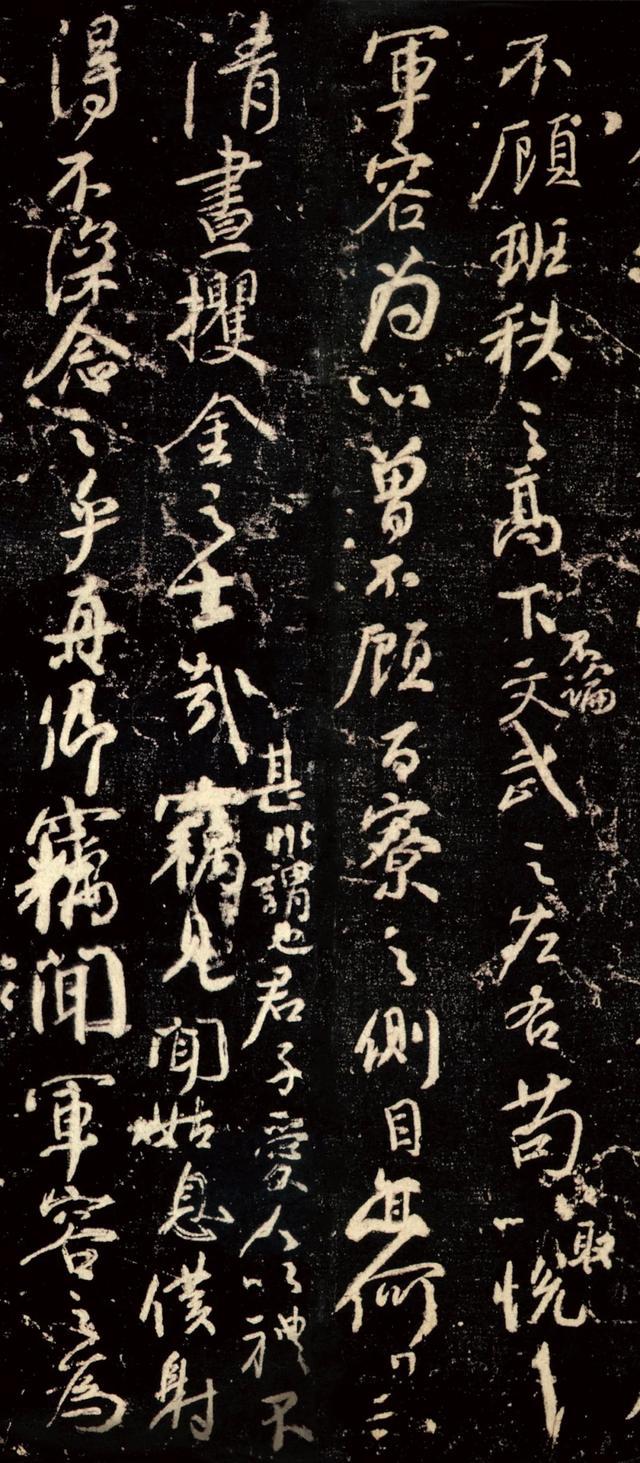 不顧班秩之高下不論文武之左右苟以取悅
軍容為心曾不顧百寮之側目亦何異
甚非謂也君子愛人以禮不
清晝攫金之士哉竊見聞姑息僕射
得不深念之乎真卿竊聞軍容之為